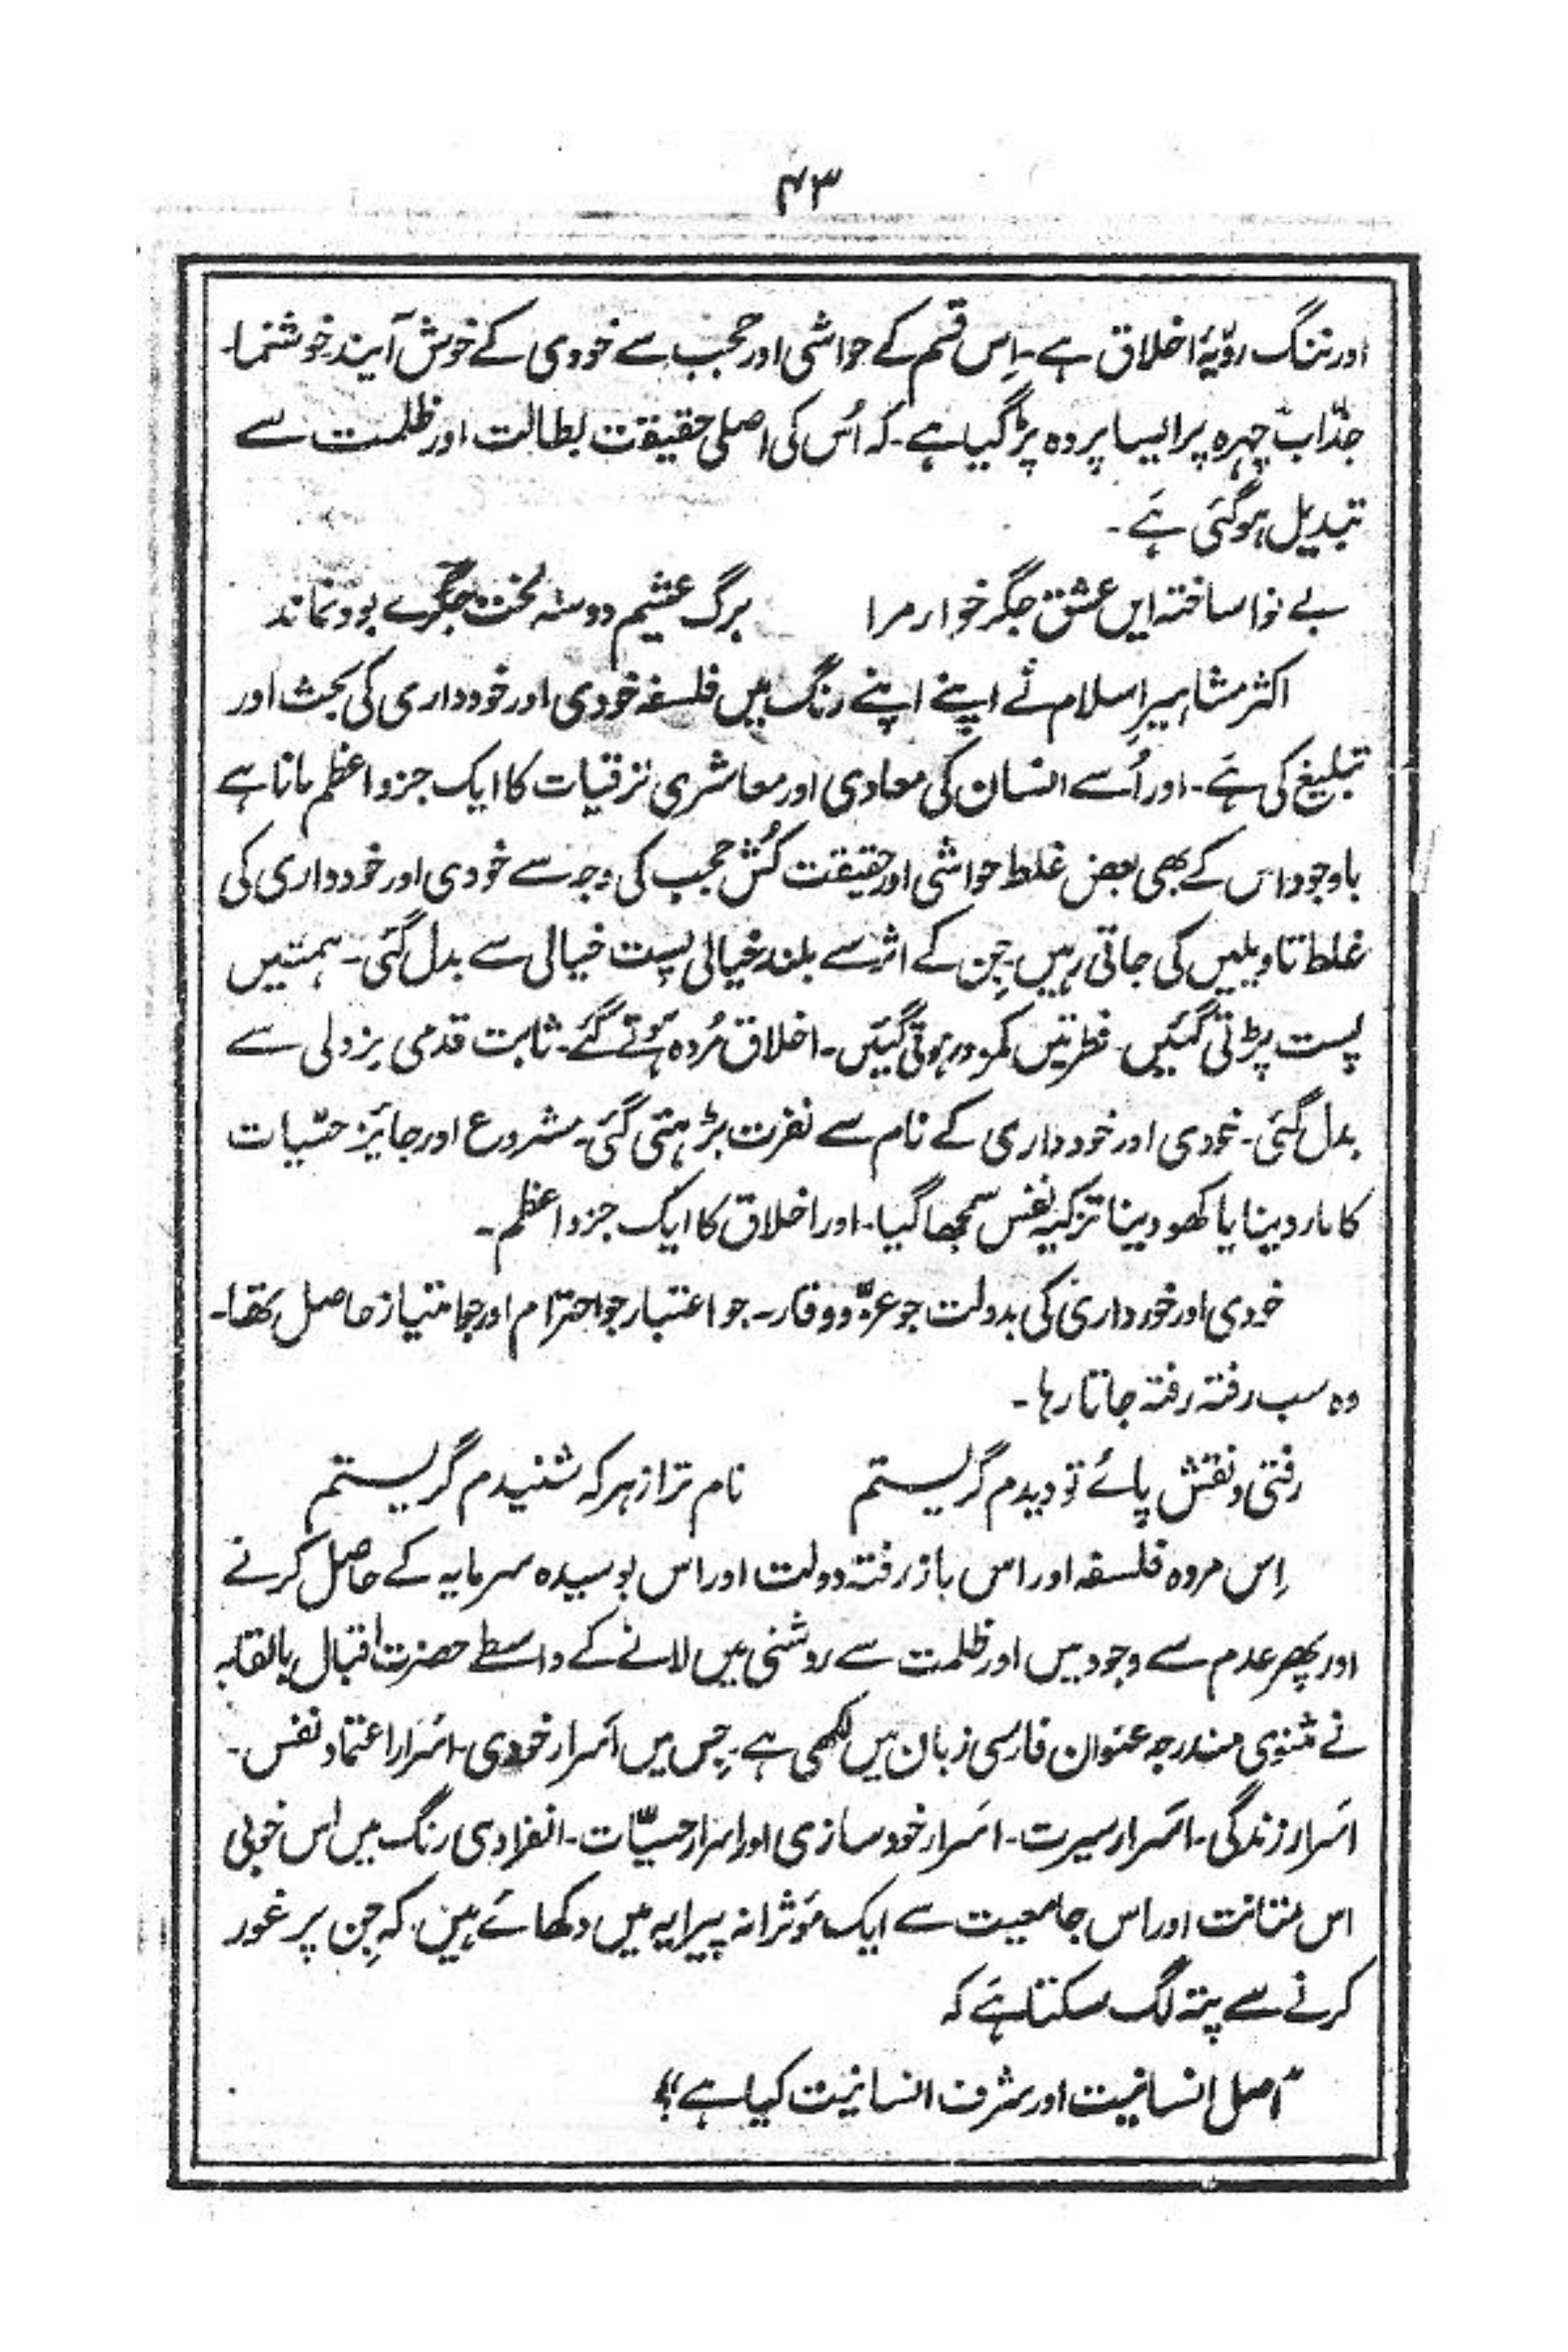 ۴۳
اور ننگ رویّۂ اخلاق ہے۔ اِس قسم کے حواشی اور حجب سے خودی کے خوش آیند خوشنما۔
جذّاب چہرہ پر ایسا پردہ پڑ گیا ہے۔ کہ اُس کی اصلی حقیقت بطالت اور ظلمت سے
تبدیل ہو گئی ہَے۔
بے نوا ساختہ ایں عشق جگر خوار مرا برگ عشیم دوسہ لخت جگرے بود نماند
اکثر مشاہیرِ اسلام نے اپنے اپنے رنگ میں فلسفہ خودی اور خودداری کی بحث اور
تبلیغ کی ہَے۔ اور اُسے انسان کی معادی اور معاشری ترقیات کا ایک جزو اعظم مانا ہے
باوجود اس کے بھی بعض غلط حواشی اور حقیقت کُش حجب کی وجہ سے خودی اور خودداری کی
غلط تاویلیں کی جاتی رہیں۔ جِن کے اثر سے بلند خیالی پست خیالی سے بدل گئی۔ ہمتیں
پست پڑتی گئیں۔ فطرتیں کمزور ہوتی گئیں۔ اخلاق مُردہ ہوتے گئے۔ ثابت قدمی بزدلی سے
بدل گئی۔ خودی اور خودداری کے نام سے نفرت بڑہتی گئی۔ مشروع اور جایز حسّیات
کا مار دینا یا کھو دینا تزکیہ نفس سمجھا گیا۔ اور اخلاق کا ایک جزو اعظم۔
خودی اور خودداری کی بدولت جو عزّ و وقار۔ جو اعتبار جو احترام اور جو امتیاز حاصل تھا۔
وہ سب رفتہ رفتہ جاتا رہا۔
رفتی و نقش پائے تو دیدم گریستم نام ترا ز ہر کہ شنیدم گریستم
اِس مردہ فلسفہ اور اس باز رفتہ دولت اور اس بوسیدہ سرمایہ کے حاصل کرنے
اور پھر عدم سے وجود میں اور ظلمت سے روشنی میں لانے کے واسطے حضرت اقبال بالقابہ
نے مثنوی مندرجہ عنوان فارسی زبان میں لکھی ہے۔ جِس میں اَسرار خودی۔ اَسرار اعتماد نفس۔
اَسرار زندگی۔ اَسرار سیرت۔ اَسرار خود سازی اور اسرار حسیّات۔ انفرادی رنگ میں اس خوبی
اس متانت اور اس جامعیت سے ایک مؤثرانہ پیرایہ میں دکھائے ہیں۔ کہ جِن پر غور
کرنے سے پتہ لگ سکتا ہَے کہ
"اصل انسانیت اور شرف انسانیت کیا ہے؟"